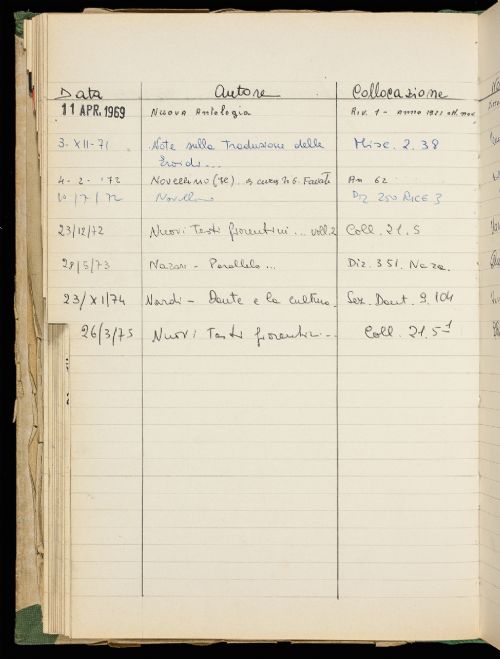 Data Autore Collocazione
11 APR. 1969 Nuova Antologia Riv. 1 - anno 1921
3-XII-71 Note sulla traduzione delle Misc. 2. 38
Eroidi...
4-2-'72 Novellino (Il) a cura di G. Favati An 62
10/7/72 Novellino Diz 200 RICE 3
23/12/72 Nuovi Testi fiorentini... vol. 2 Coll. 21. 5
28/5/73 Nazari - Parallelo... Diz. 351. Naza.
23/XI/74 Nardi - Dante e la cultura. Sez. Dant. 9. 104
26/3/75 Nuovi Testi fiorentini... Coll. 21. 5¹